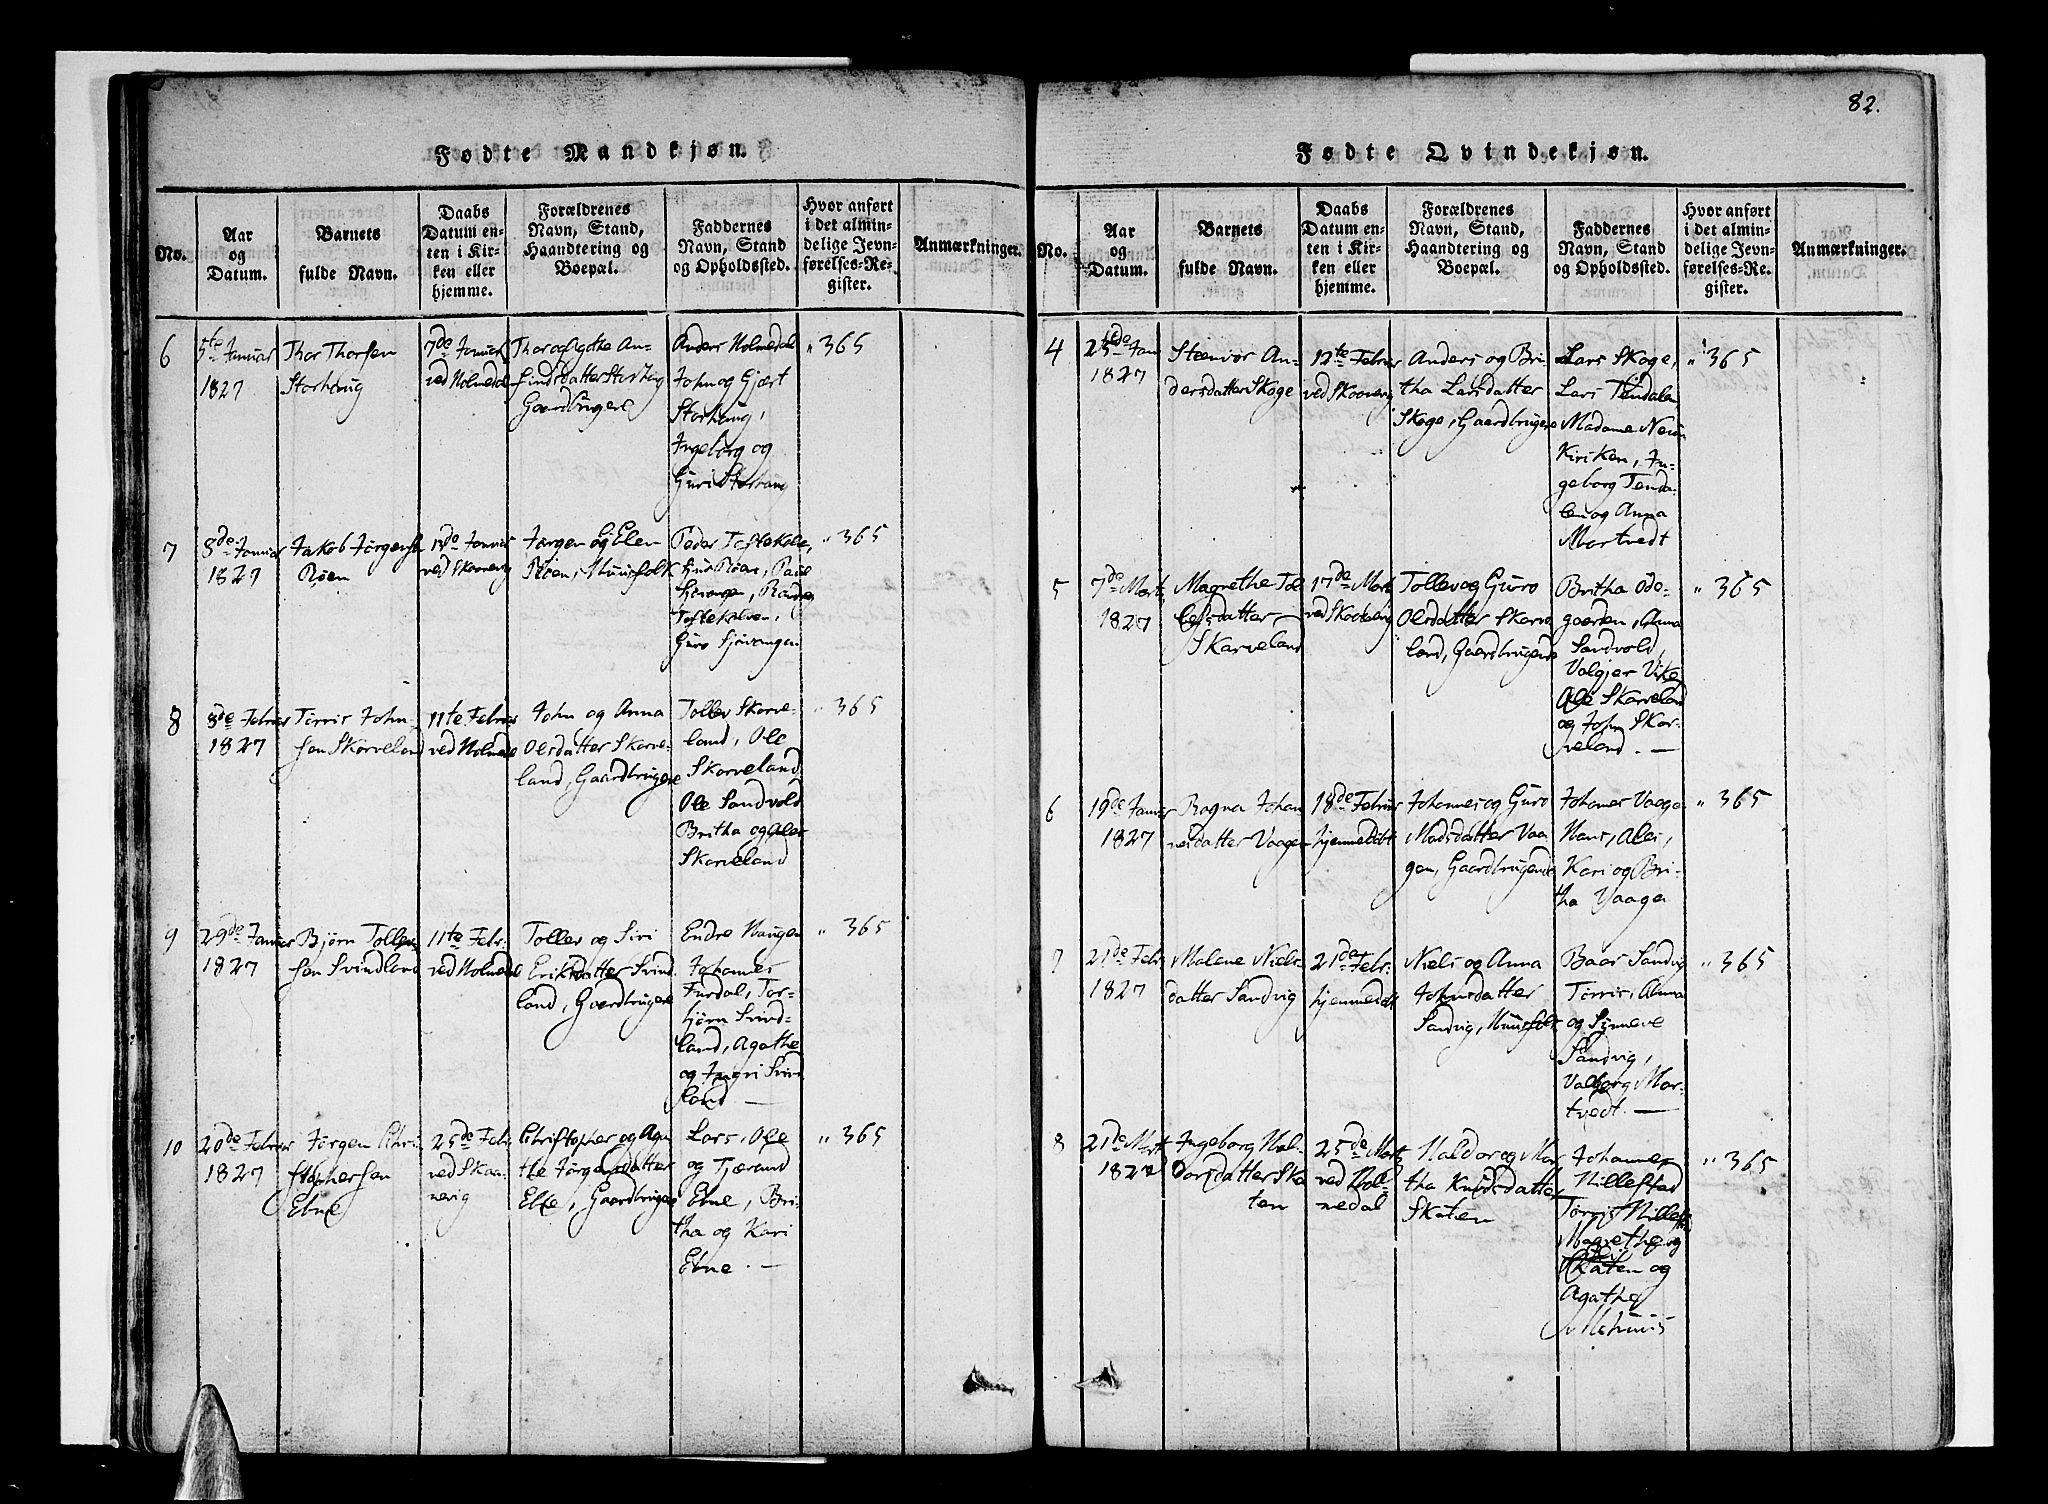 82.
Fødte Mandkjøn.
No.
Aar
og
Datum.
Barnets
fulde Navn.
Daabs
Datum en-
ten i Kir-
ken eller
hjemme.
Forældrenes
Navn, Stand,
Haandtering og
Boepæl.
Faddernes
Navn, Stand
og Opholdssted.
Hvor anført
i det almin-
delige Jevn-
førelses-Re-
gister.
Anmærkninger.
6
5te Januar
1827
Thor Thorsen
Storhoug
7de Januar
ved Holmedal
Thor og Agthe An-
findsdatter Storhoug
Gaardbrugere
Anders Holmedal
John og Gjært
Storhoug,
Ingeborg og
Guri Storhoug
" 365
7
8de Januar
1827
Jakob Jørgens.
Røen
ved Skoonevig
Jørgen og Elen
Røen, Huusfolk
Peder Toftekalve,
Røen, Paul
Toftekalven,
Guro
" 365
8
3de Februar
1827
Tørris John-
son Skorveland
11te Februar
ved Holmedal
John og Anna
Olsdatter Skorve-
land, Gaardbrugere
Tollev Skorve-
land, Ole
Skorveland
Ole Sandvold
Britha og
Skorveland
" 365
9
29de Januar
1827
Bjørn Tollev-
son Svindland
11te Febr.
ved Holmedal
Tollev og Siri
Eriksdatter Svind-
land, Gaardbrugere
Endre Haugen
Johannes
Furdal, Tor-
bjørn Svind-
land, Agathe
og Ingri Svind-
land —
" 365
10
20de Februar
1827
Jørgen Chri-
stophersen
Ebne
25de Febr.
ved Skaa-
nevig
Christopher og Aga-
the Jørgensdatter
Ebne, Gaardbrugere
Lars, Ole
og Tjærand
Ebne, Bri-
tha og Kari
Ebne. —
" 365
Fødte Qvindekjøn.
No.
Aar
og
Datum.
Barnets
fulde Navn.
Daabs
Datum en-
ten i Kir-
ken eller
hjemme.
Forældrenes
Navn, Stand,
Haandtering og
Boepæl.
Faddernes
Navn, Stand
og Opholdssted.
Hvor anført
i det almin-
delige Jevn-
førelses-Re-
gister.
Anmærkninger.
4
1827
Steenvor An-
dersdatter Skoge
ved Skoonevig
Anders og Bri-
tha Larsdatter
Skoge, Gaardbrugere
Lars Skoge,
Lars Tendalen
Madame
Kiriken, In-
geborg Tenda-
len og Anna
Mortvedt
" 365
5
7de Marts
1827
Magrethe Tol-
lefsdatter
Skarveland
17de Marts
ved Skoonevig
Tollev og Guro
Olsdatter Skarve-
land, Gaardbrugende
Britha Øde-
gaarden, Anna
Sandvold,
Valgjer Vike
Ole Skarveland
og John Skar-
veland. —
" 365
6
19de Januar
1827
Ragna Johan-
nesdatter Vaagen
18de Februar
hjemmedøbt
Johannes og Guro
Madsdatter Vaa-
gen, Gaardbrugende
Johannes Vaagen
Hans, Ales,
Kari og Bri-
tha Vaage
" 365
7
21de Febr.
1827
Malene Niels-
datter Sandvig
21de Febr.
hjemmedøbt
Niels og Anna
Johnsdatter
Sandvig, Huusfolk
Baar Sandvig
Tørris, Anna
og Synneve
Sandvig,
Valborg Mor-
tvedt —
" 365
8
21de Marts
1827
Ingeborg Hal-
dorsdatter Ska-
ten
25de Marts
ved Hol-
medal
Haldor og Mar-
tha Knudsdatter
Skaten
Johannes
Millestad
Magrethe og
Skaten og
Agathe
" 365